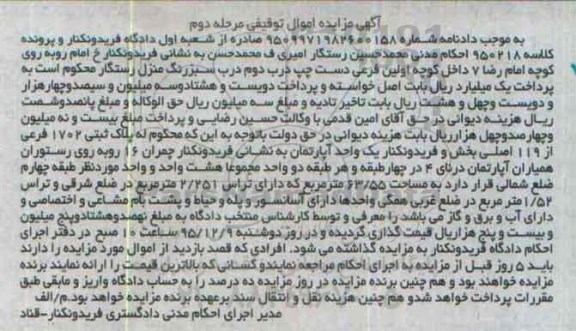 آگهی مزایده اموال توقیفی مرحله دوم
به موجب دادنامه شماره ۹۵۰۹۹۷۱۹۸۲۶۰۰۱۵۸ صادره از شعبه اول دادگاه فریدونکنار و پرونده
کلاسه ۹۵۰۲۱۸ احکام مدنی محمدحسین رستگار امیری ف محمدحسن به نشانی فریدونکنار خ امام روبه روی
کوچه امام رضا ۷ داخل کوچه اولین فرعی دست چپ درب دوم درب سبزرنگ منزل رستگار محکوم است به
پرداخت یک میلیارد ریال بابت اصل خواسته و پرداخت دویست و هشتادوسه میلیون و سیصدوچهارهزار
و دویست وچهل و هشت ریال بابت تاخیر تادیه و مبلغ سه میلیون ریال حق الوکاله و مبلغ پانصدوشصت
ریال هزینه دیوانی در حق آقای امین قدمی با وکالت حسین رضایی و پرداخت مبلغ بیست و نه میلیون
وچهارصدوچهل هزارریال بابت هزینه دیوانی در حق دولت باتوجه به این که محکوم له پلاک ثبتی ۱۷۰۲ فرعی
از ۱۱۹ اصلی بخش و فریدونکنار یک واحد آپارتمان به نشانی فریدونکنار چمران ۱۶ روبه روی رستوران
همیاران آپارتمان درنای ۴ در چهارطبقه و هر طبقه دو واحد مجموعا هشت واحد و واحد موردنظر طبقه چهارم
ضلع شمالی قرار دارد به مساحت ۶۲/۵۵ مترمربع که دارای تراس ۲/۲۵۱ مترمربع در ضلع شرقی و تراس
۱/۵۲ متر مربع در ضلع غربی همگی واحدها دارای آسانسور و پله و حیاط و پشت بام مشاعی و اختصاصی و
دارای آب و برق و گاز می باشد را معرفی و توسط کارشناس منتخب دادگاه به مبلغ نهصدوهشتادوپنج میلیون
و بیست و پنج هزارریال قیمت گذاری گردیده و در روز دوشنبه ۹۵/۱۲/۹ ساعت ۱۰ صبح در دفتر اجرای
احکام دادگاه فریدونکنار به مزایده گذاشته می شود. افرادی که قصد بازدید از اموال مورد مزایده را دارند
باید ۵ روز قبل از مزایده به اجرای احکام مراجعه نمایندو کسانی که بالاترین قیمت را ارائه نمایند برنده
مزایده خواهند بود و هم چنین برنده مزایده در روز مزایده ده درصد را به حساب دادگاه واریز و مابقی طبق
مقررات پرداخت خواهد شدو هم چنین هزینه نقل و انتقال سند برعهده برنده مزایده خواهد بود.م/الف
مدیر اجرای احکام مدنی دادگستری فریدونکنار-قناد